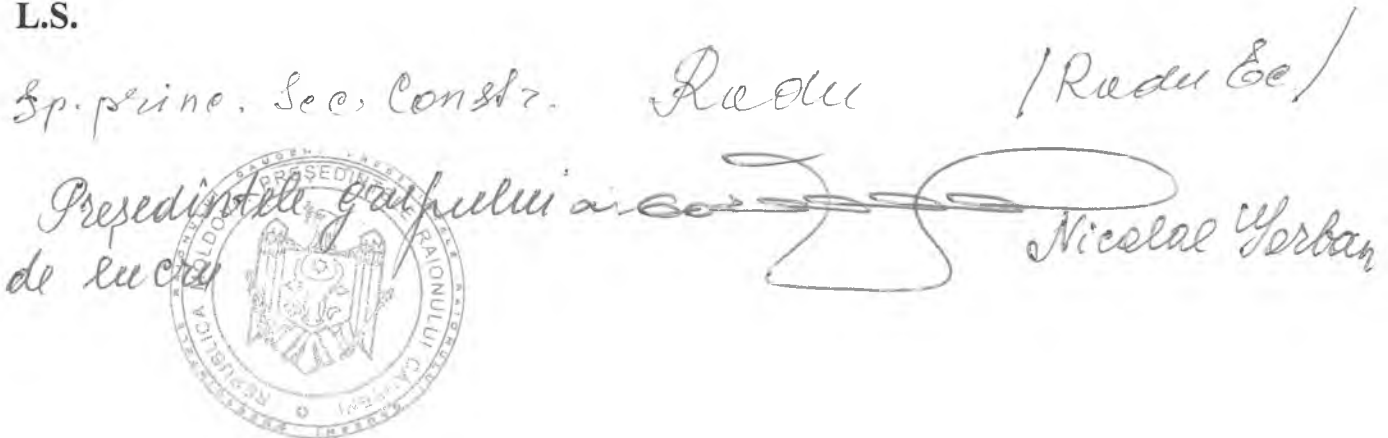 L.S.
Sp. princ. Sec. Constr. Radu /Radu Ec/
Președintele grupului Nicolae Șerban
de lucru
REPUBLICA MOLDOVA PREȘEDINTELE RAIONULUI CĂUȘENI